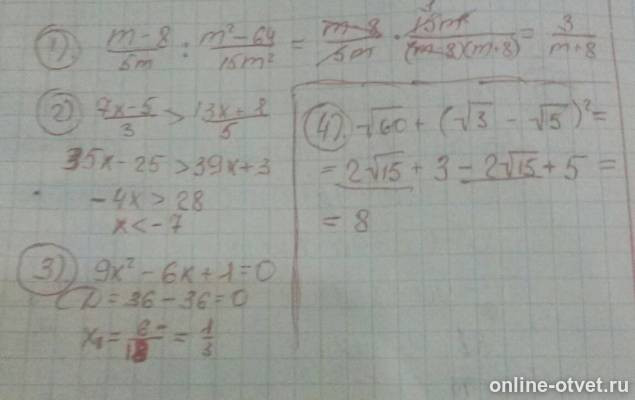 1). (m-8)/5m : (m²-64)/15m² = (m-8)/5m · 15m²/((m-8)(m+8)) = 3/(m+8)
2) (7x-5)/3 > (13x+1)/5
35x-25 > 39x+3
-4x > 28
x < -7
3) 9x² - 6x + 1 = 0
D = 36 - 36 = 0
x₁ = 6/18 = 1/3
4). √60 + (√3 - √5)² =
= 2√15 + 3 - 2√15 + 5 =
= 8
online-otvet.ru